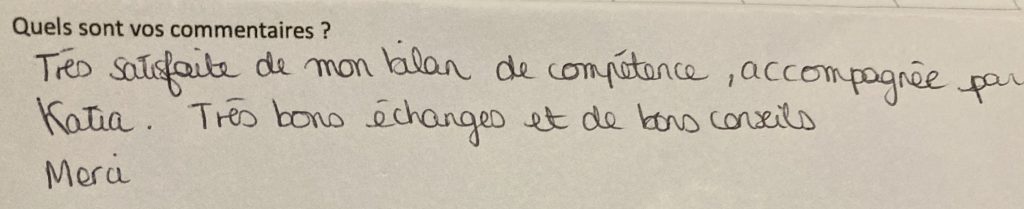 Quels sont vos commentaires ?
Très satisfaite de mon bilan de compétence, accompagnée par
Katia. Très bons échanges et de bons conseils
Merci